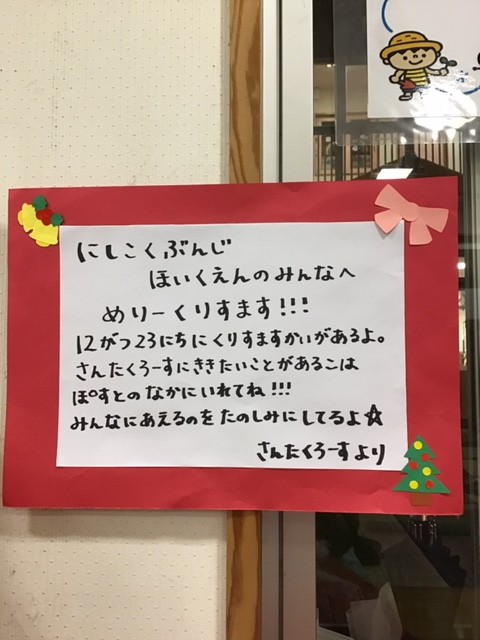 にしこくぶんじ
ほいくえんのみんなへ
めりーくりすます!!!
12がつ23にちにくりすますかいがあるよ。
さんたくろーすにききたいことがあるこは
ぽすとのなかにいれてね!!!
みんなにあえるのをたのしみにしてるよ☆
さんたくろーすより